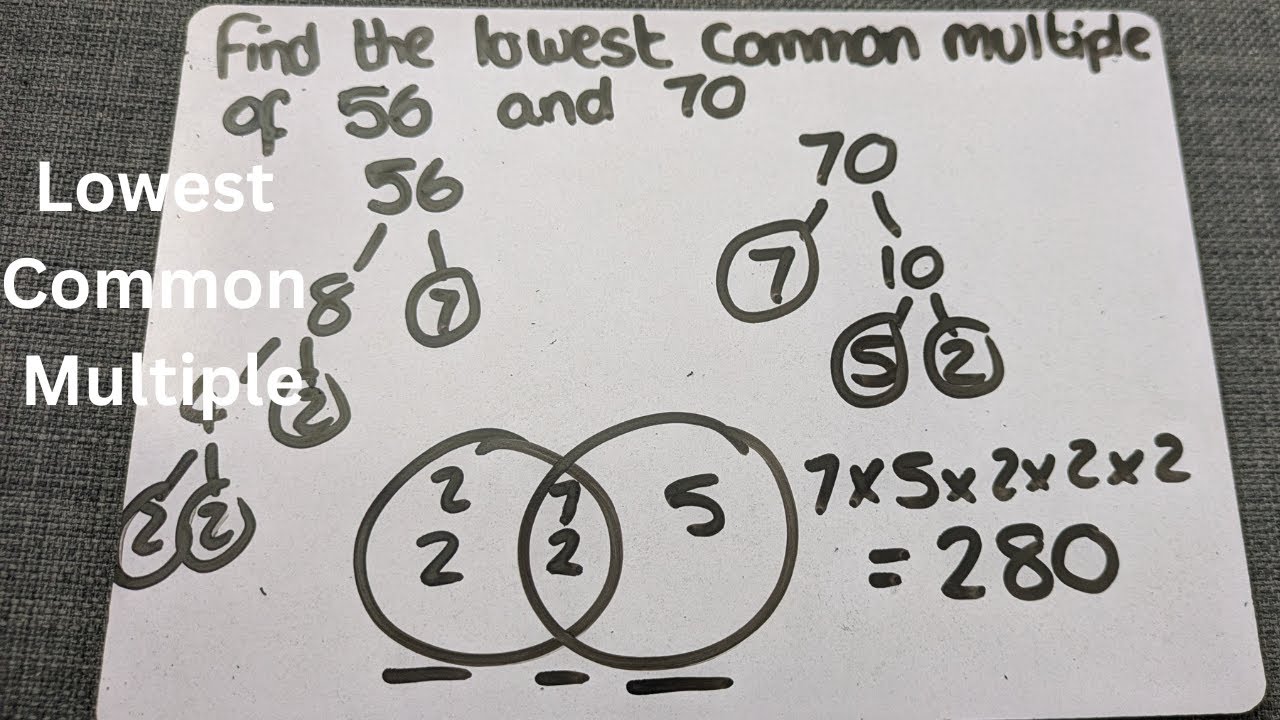 Find the lowest common multiple
of 56 and 70
Lowest
Common
Multiple
56
8 7
4 2
2 2
70
7 10
5 2
2 7 5
2 2
7×5×2×2×2
=280